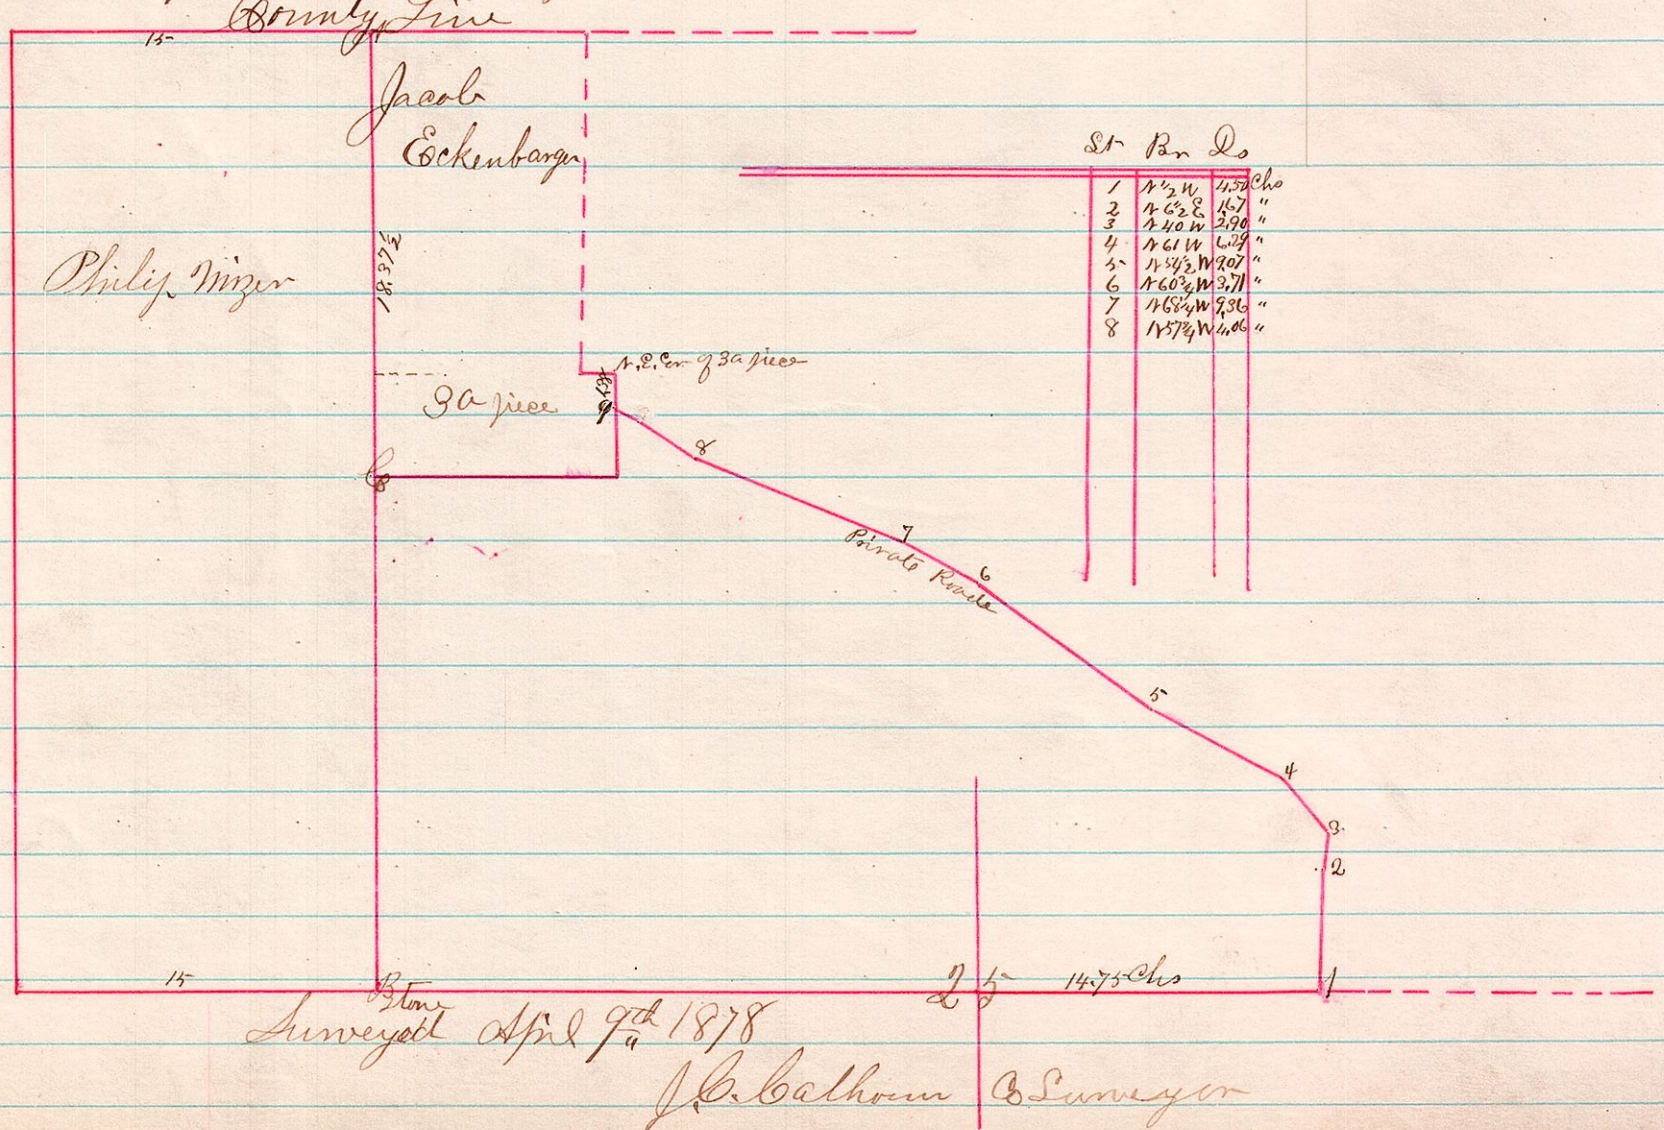 County Line
15
A
Jacob
Eckenbarger
Philip Mizer
18.37½
St Br Ds
1 N ½ W 4.50 Chs
2 N 6½ E 1.67 "
3 N 40 W 2.90 "
4 N 61 W 6.29 "
5 N 54½ W 9.07 "
6 N 60¾ W 3.71 "
7 N 68¼ W 9.36 "
8 N 57¾ W 4.06 "
N.E. Cor of 3a piece
3a piece
9
C
8
7
Private Roade
6
5
4
3
2
15
B
Stone
25
14.75 Chs
1
Surveyed April 9th 1878
J.C. Calhoun Co Surveyor